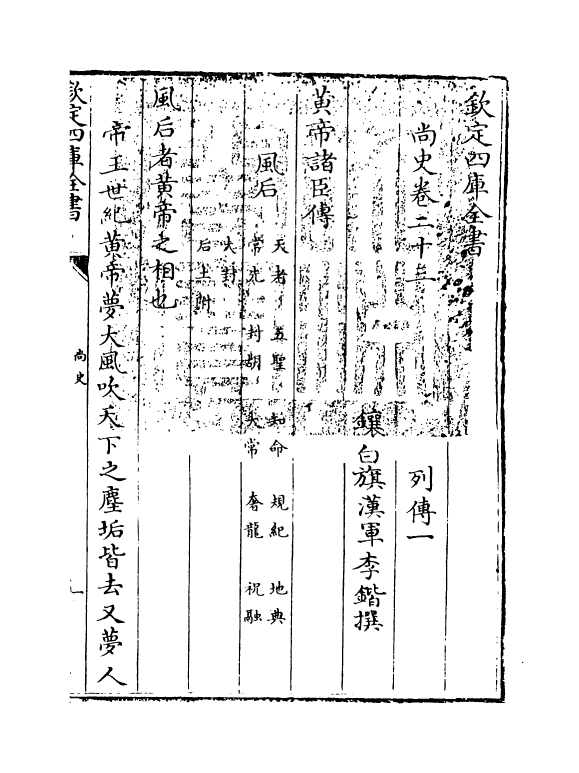 欽定四庫全書
尚史卷二十三　列傳一
鑲白旗漢軍李鍇撰
黃帝諸臣傳
風后
天老　五聖　知命　規紀　地典
常先　封胡　大常　奢龍　祝融
大封
后土附
風后者黃帝之相也
帝王世紀黃帝夢大風吹天下之塵垢皆去又夢人
欽定四庫全書
尚史